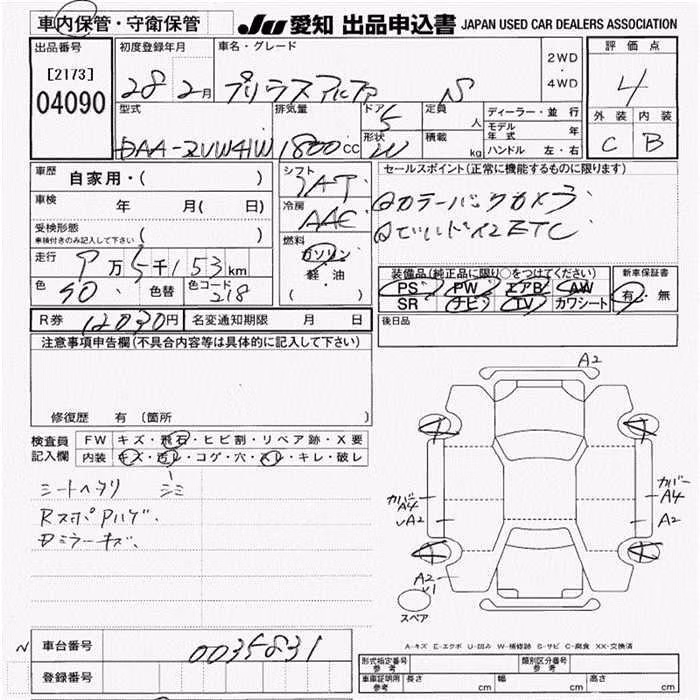 車内保管・守衛保管
JU 愛知 出品申込書 JAPAN USED CAR DEALERS ASSOCIATION
出品番号
[2173]
04090
初度登録年月
28 2月
車名・グレード
プリウスアルファ S
2WD
・
4WD
評価点
4
外装 内装
C B
型式
DAA-ZVW41W
排気量
1800cc
ドア
5
形状
W
定員
人
積載
kg
ディーラー・並行
モデル年式 年
ハンドル 左・右
車歴
自家用・( )
車検 年 月( 日)
受検形態
車検付きのみ記入して下さい ( )
走行
9万5千153km
色
90
色替
色コード
218
シフト
IAT
冷房
AAC
燃料
ガソリン
・
軽油
・
( )
セールスポイント(正常に機能するものに限ります)
①カラーバックカメラ
②ビルドインETC
装備品(純正品に限り○をつけてください)
PS PW エアB AW
SR ナビ TV カワシート
新車保証書
有・無
後日品
R券 12030円 名変通知期限 月 日
注意事項申告欄(不具合内容等は具体的に記入して下さい)
修復歴 有 (箇所 )
検査員記入欄
FW キズ・飛石・ヒビ割・リペア跡・X要
内装 キズ・汚レ・コゲ・穴・スレ・キレ・破レ
シートヘタリ シミ
Dミラーキズ
A2
カバー
A4
A2
カバー
A4
A2
A2
スペア
A-キズ E-エクボ U-凹み W-補修跡 S-サビ C-腐食 XX-交換済
車台番号
0035831
登録番号
形式指定番号
参考
類別区分番号
参考
車庫証明用
参考
長さ cm 幅 cm 高さ cm